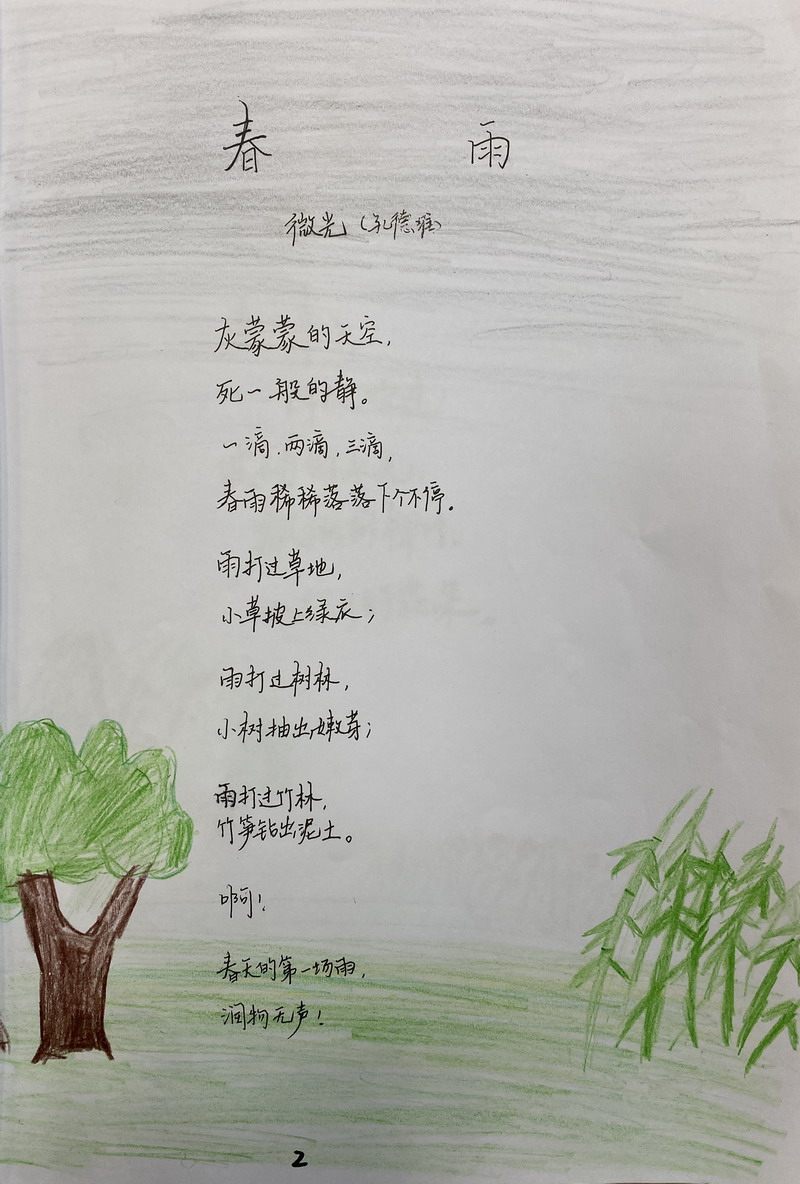 春 雨
微光（孔德雅）
灰蒙蒙的天空，
死一般的静。
一滴，两滴，三滴，
春雨稀稀落落下个不停。
雨打过草地，
小草披上绿衣；
雨打过树林，
小树抽出嫩芽；
雨打过竹林，
竹笋钻出泥土。
啊！
春天的第一场雨，
润物无声！
2